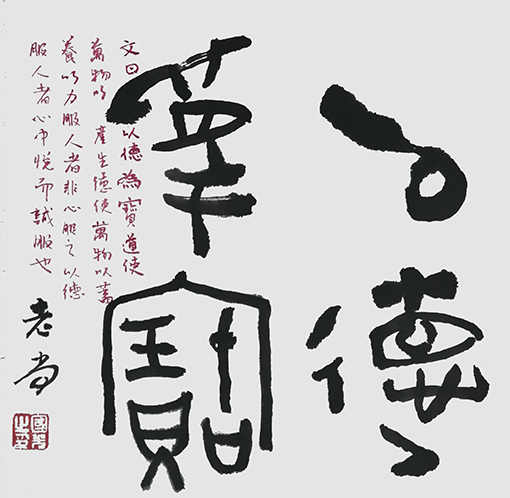 以德
寶
文曰以德為寶道使
萬物以產生德使萬物以蓄
養以力服人者非心服之以德
服人者心中悅而誠服也
老尚